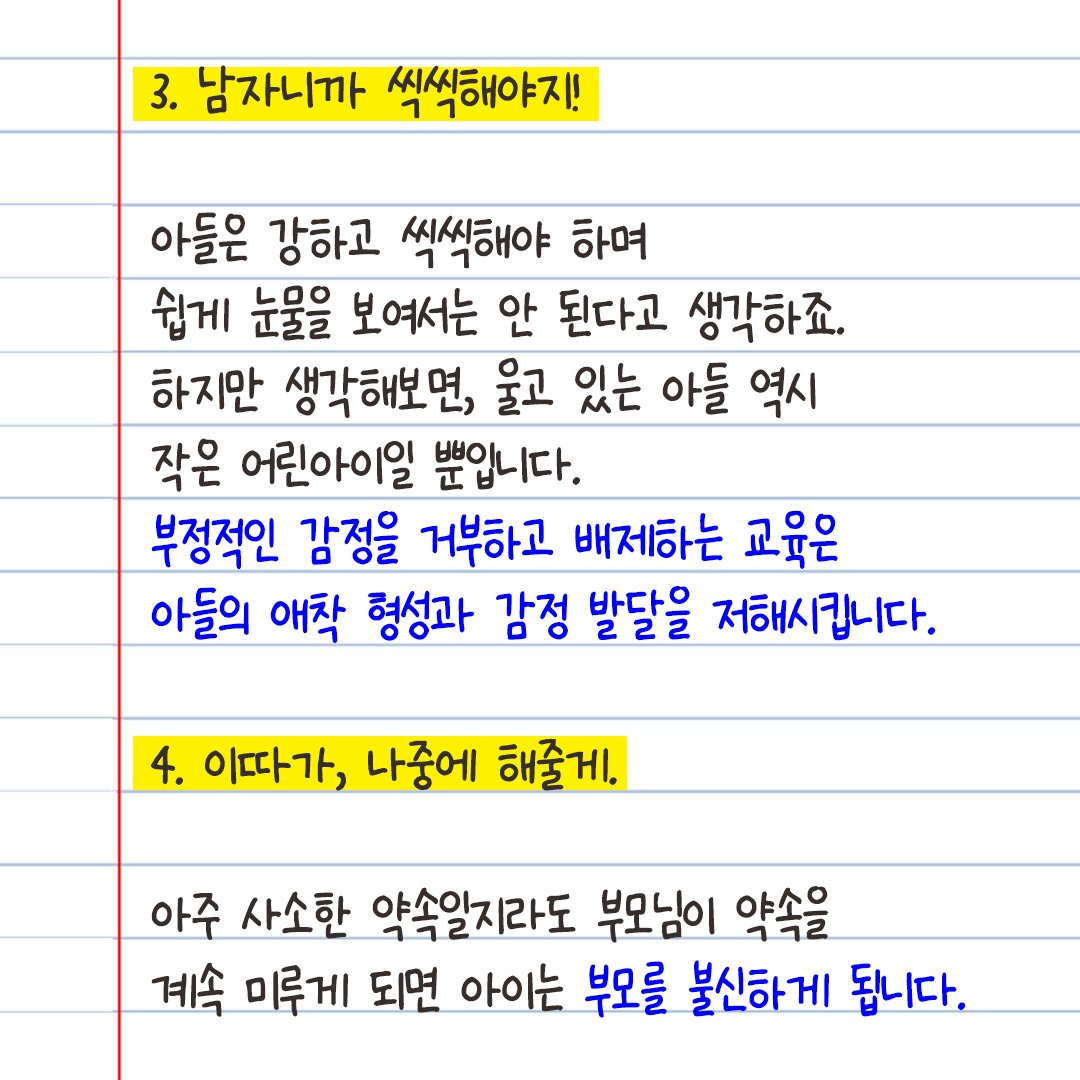 3. 남자니까 씩씩해야지!
아들은 강하고 씩씩해야 하며
쉽게 눈물을 보여서는 안 된다고 생각하죠.
하지만 생각해보면, 울고 있는 아들 역시
작은 어린아이일 뿐입니다.
부정적인 감정을 거부하고 배제하는 교육은
아들의 애착 형성과 감정 발달을 저해시킵니다.
4. 이따가, 나중에 해줄게.
아주 사소한 약속일지라도 부모님이 약속을
계속 미루게 되면 아이는 부모를 불신하게 됩니다.